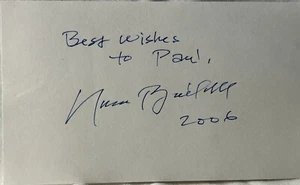 Best wishes
to Paul,
2006